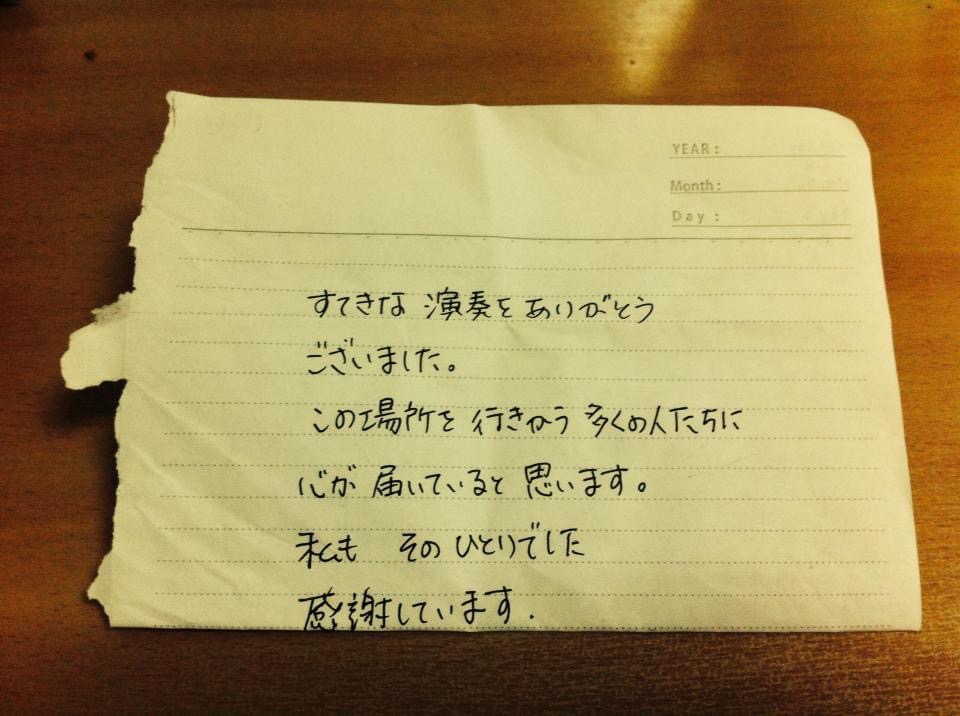 YEAR :
Month :
Day :
すてきな 演奏を ありがとう
ございました。
この場所を 行きかう 多くの人たちに
心が 届いていると 思います。
私も そのひとりでした
感謝しています.